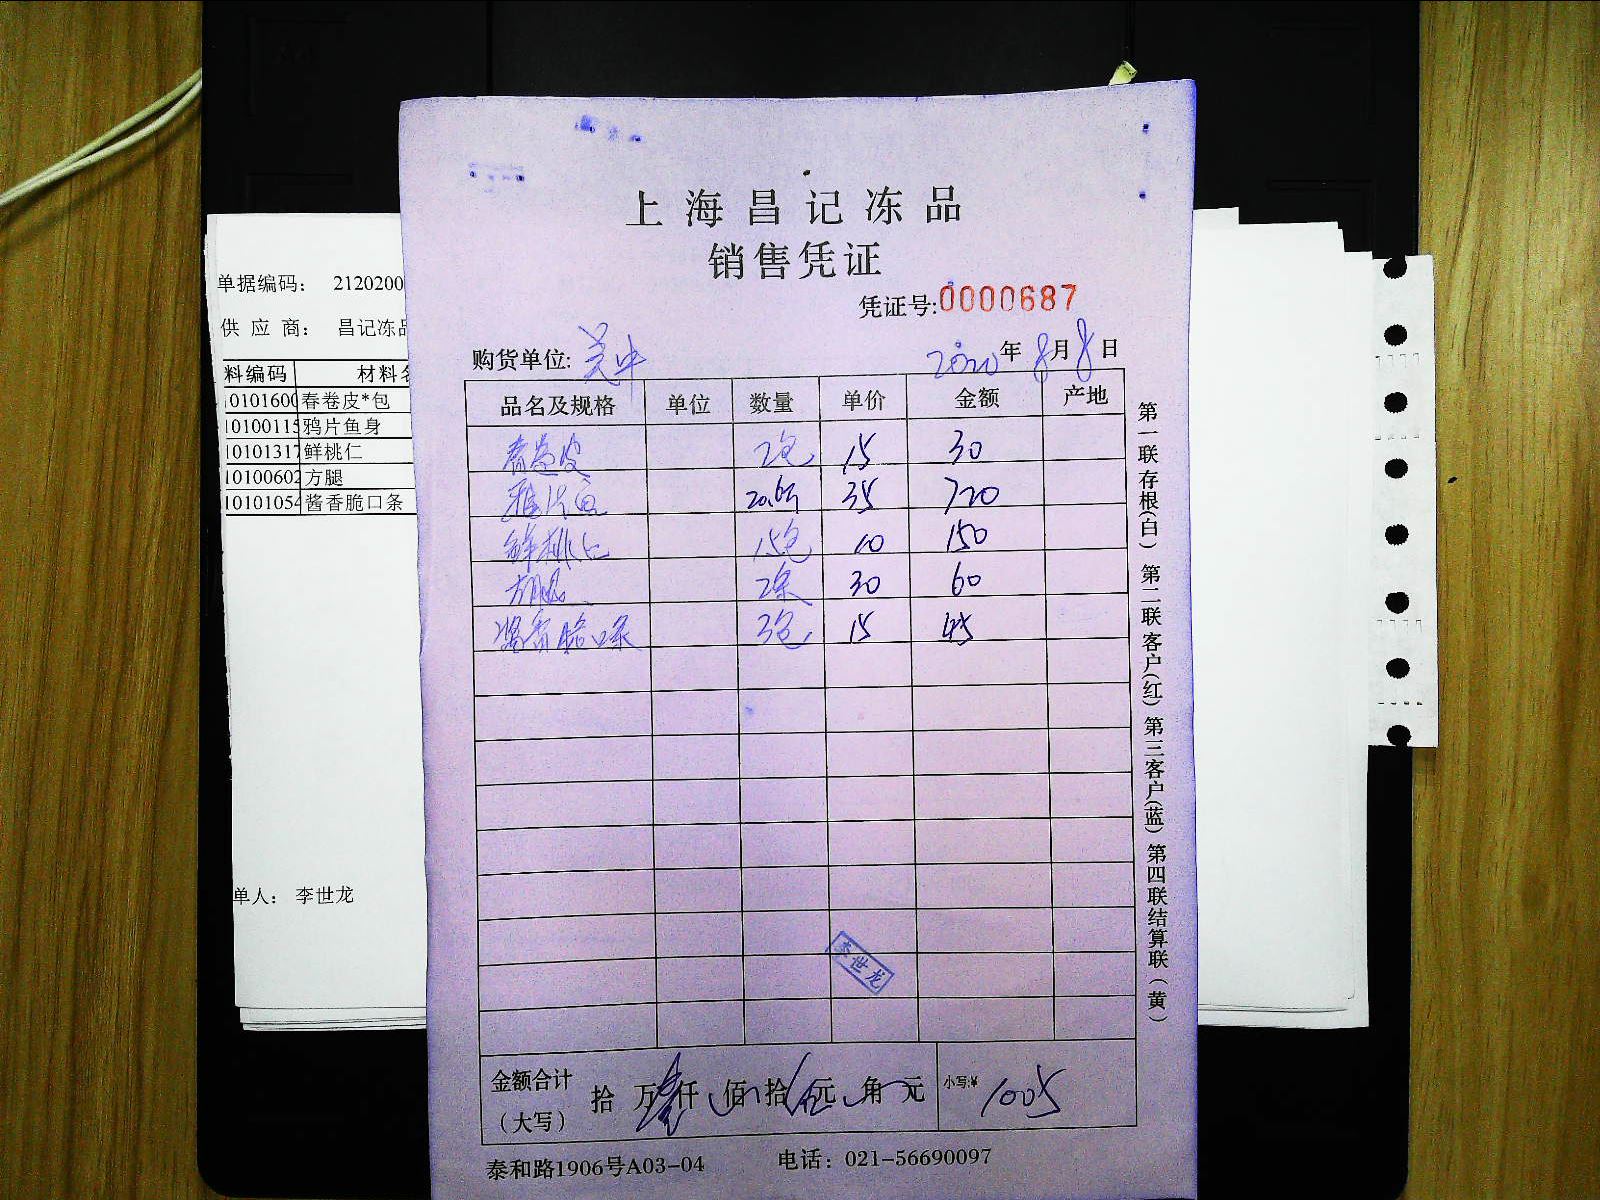 上海昌记冻品
销售凭证
凭证号:0000687
购货单位: 吴中 2020年8月8日
品名及规格 单位 数量 单价 金额 产地
春卷皮 2包 15 30
雅片鱼 20.6斤 35 720
鲜桃仁 15包 10 150
方腿 2条 30 60
酱香脆口条 3包 15 45
金额合计
(大写)
拾 万 壹仟 佰 拾 伍元 角 元
小写:¥ 1005
泰和路1906号A03-04 电话: 021-56690097
第一联存根(白) 第二联客户(红) 第三客户(蓝) 第四联结算联(黄)
李世龙
单据编码: 2120200
供应商: 昌记冻品
料编码 材料名
10101600 春卷皮*包
10100115 鸦片鱼身
10101317 鲜桃仁
10100602 方腿
10101054 酱香脆口条
单人: 李世龙